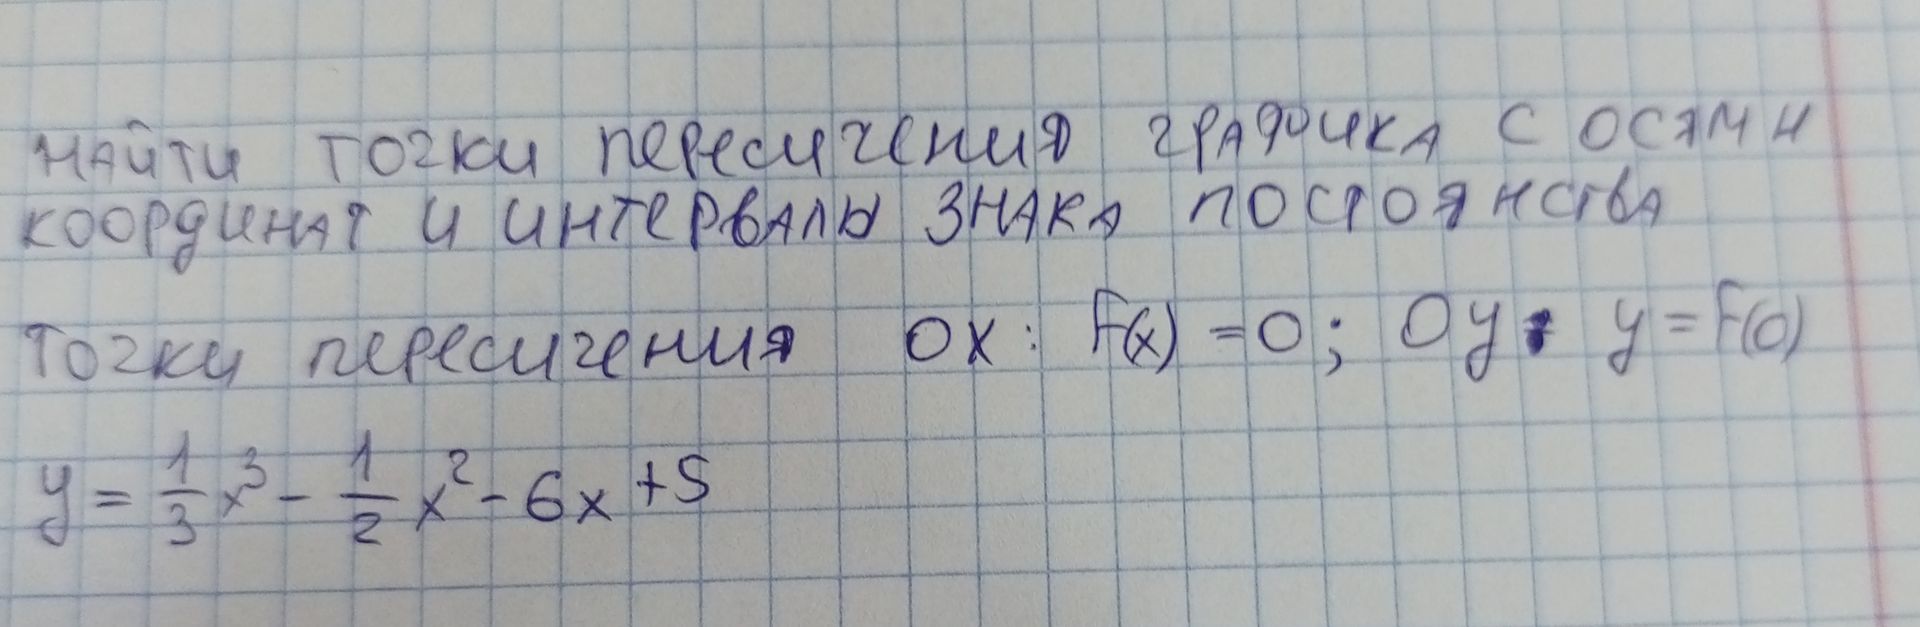 НАЙТИ ТОЧКИ пересичения графика с осями
координат и интервалы знака постоянства
Точки пересичения Ox: F(x) = 0; Oy: y = F(0)
y = \frac{1}{3}x^3 - \frac{1}{2}x^2 - 6x + 5